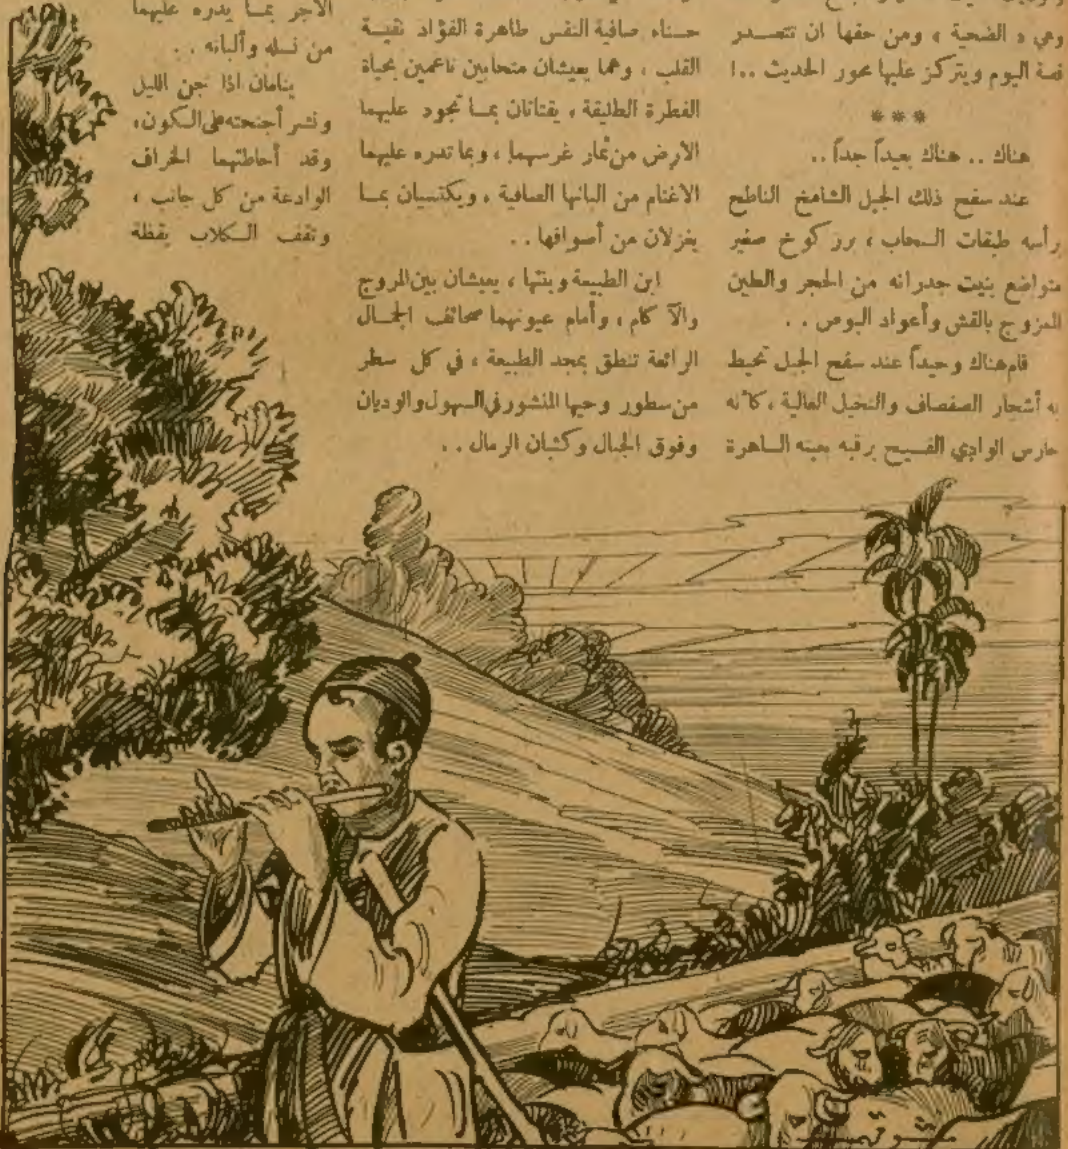 وهي « الضحية » ومن حقها ان تتصدر
قصة اليوم ويتركز عليها محور الحديث ..!
***
هناك .. هناك بعيداً جداً ..
عند سفح ذلك الجبل الشامخ الناطح
رأسه طبقات السحاب ، برز كوخ صغير
متواضع بنيت جدرانه من الحجر والطين
الممزوج بالقش وأعواد البوص ..
قام هناك وحيداً عند سفح الجبل تحيط
به أشجار الصفصاف والنخيل العالية ، كأنه
حارس الوادي الفسيح يرقبه بعينه الساهرة
حسناء صافية النفس طاهرة الفؤاد نقية
القلب ، وهما يعيشان متحابين ناعمين بحياة
الفطرة الطليقة ، يقتاتان بما تجود عليهما
الأرض من ثمار غرسهما ، وبما تدره عليهما
الاغنام من البانها الصافية ، ويكتسيان بما
يغزلان من أصوافها ..
ابن الطبيعة وبنتها ، يعيشان بين المروج
والآكام ، وأمام عيونهما صحائف الجمال
الرائعة تنطق بمجد الطبيعة ، في كل سطر
من سطور وحيها المنشور في السهول والوديان
وفوق الجبال وكثبان الرمال ..
الأجر بما يدره عليهما
من نسله وألبانه ..
ينامان اذا جن الليل
ونشر أجنحته على الكون ،
وقد أحاطتهما الخراف
الوادعة من كل جانب ،
وتقف الكلاب يقظة